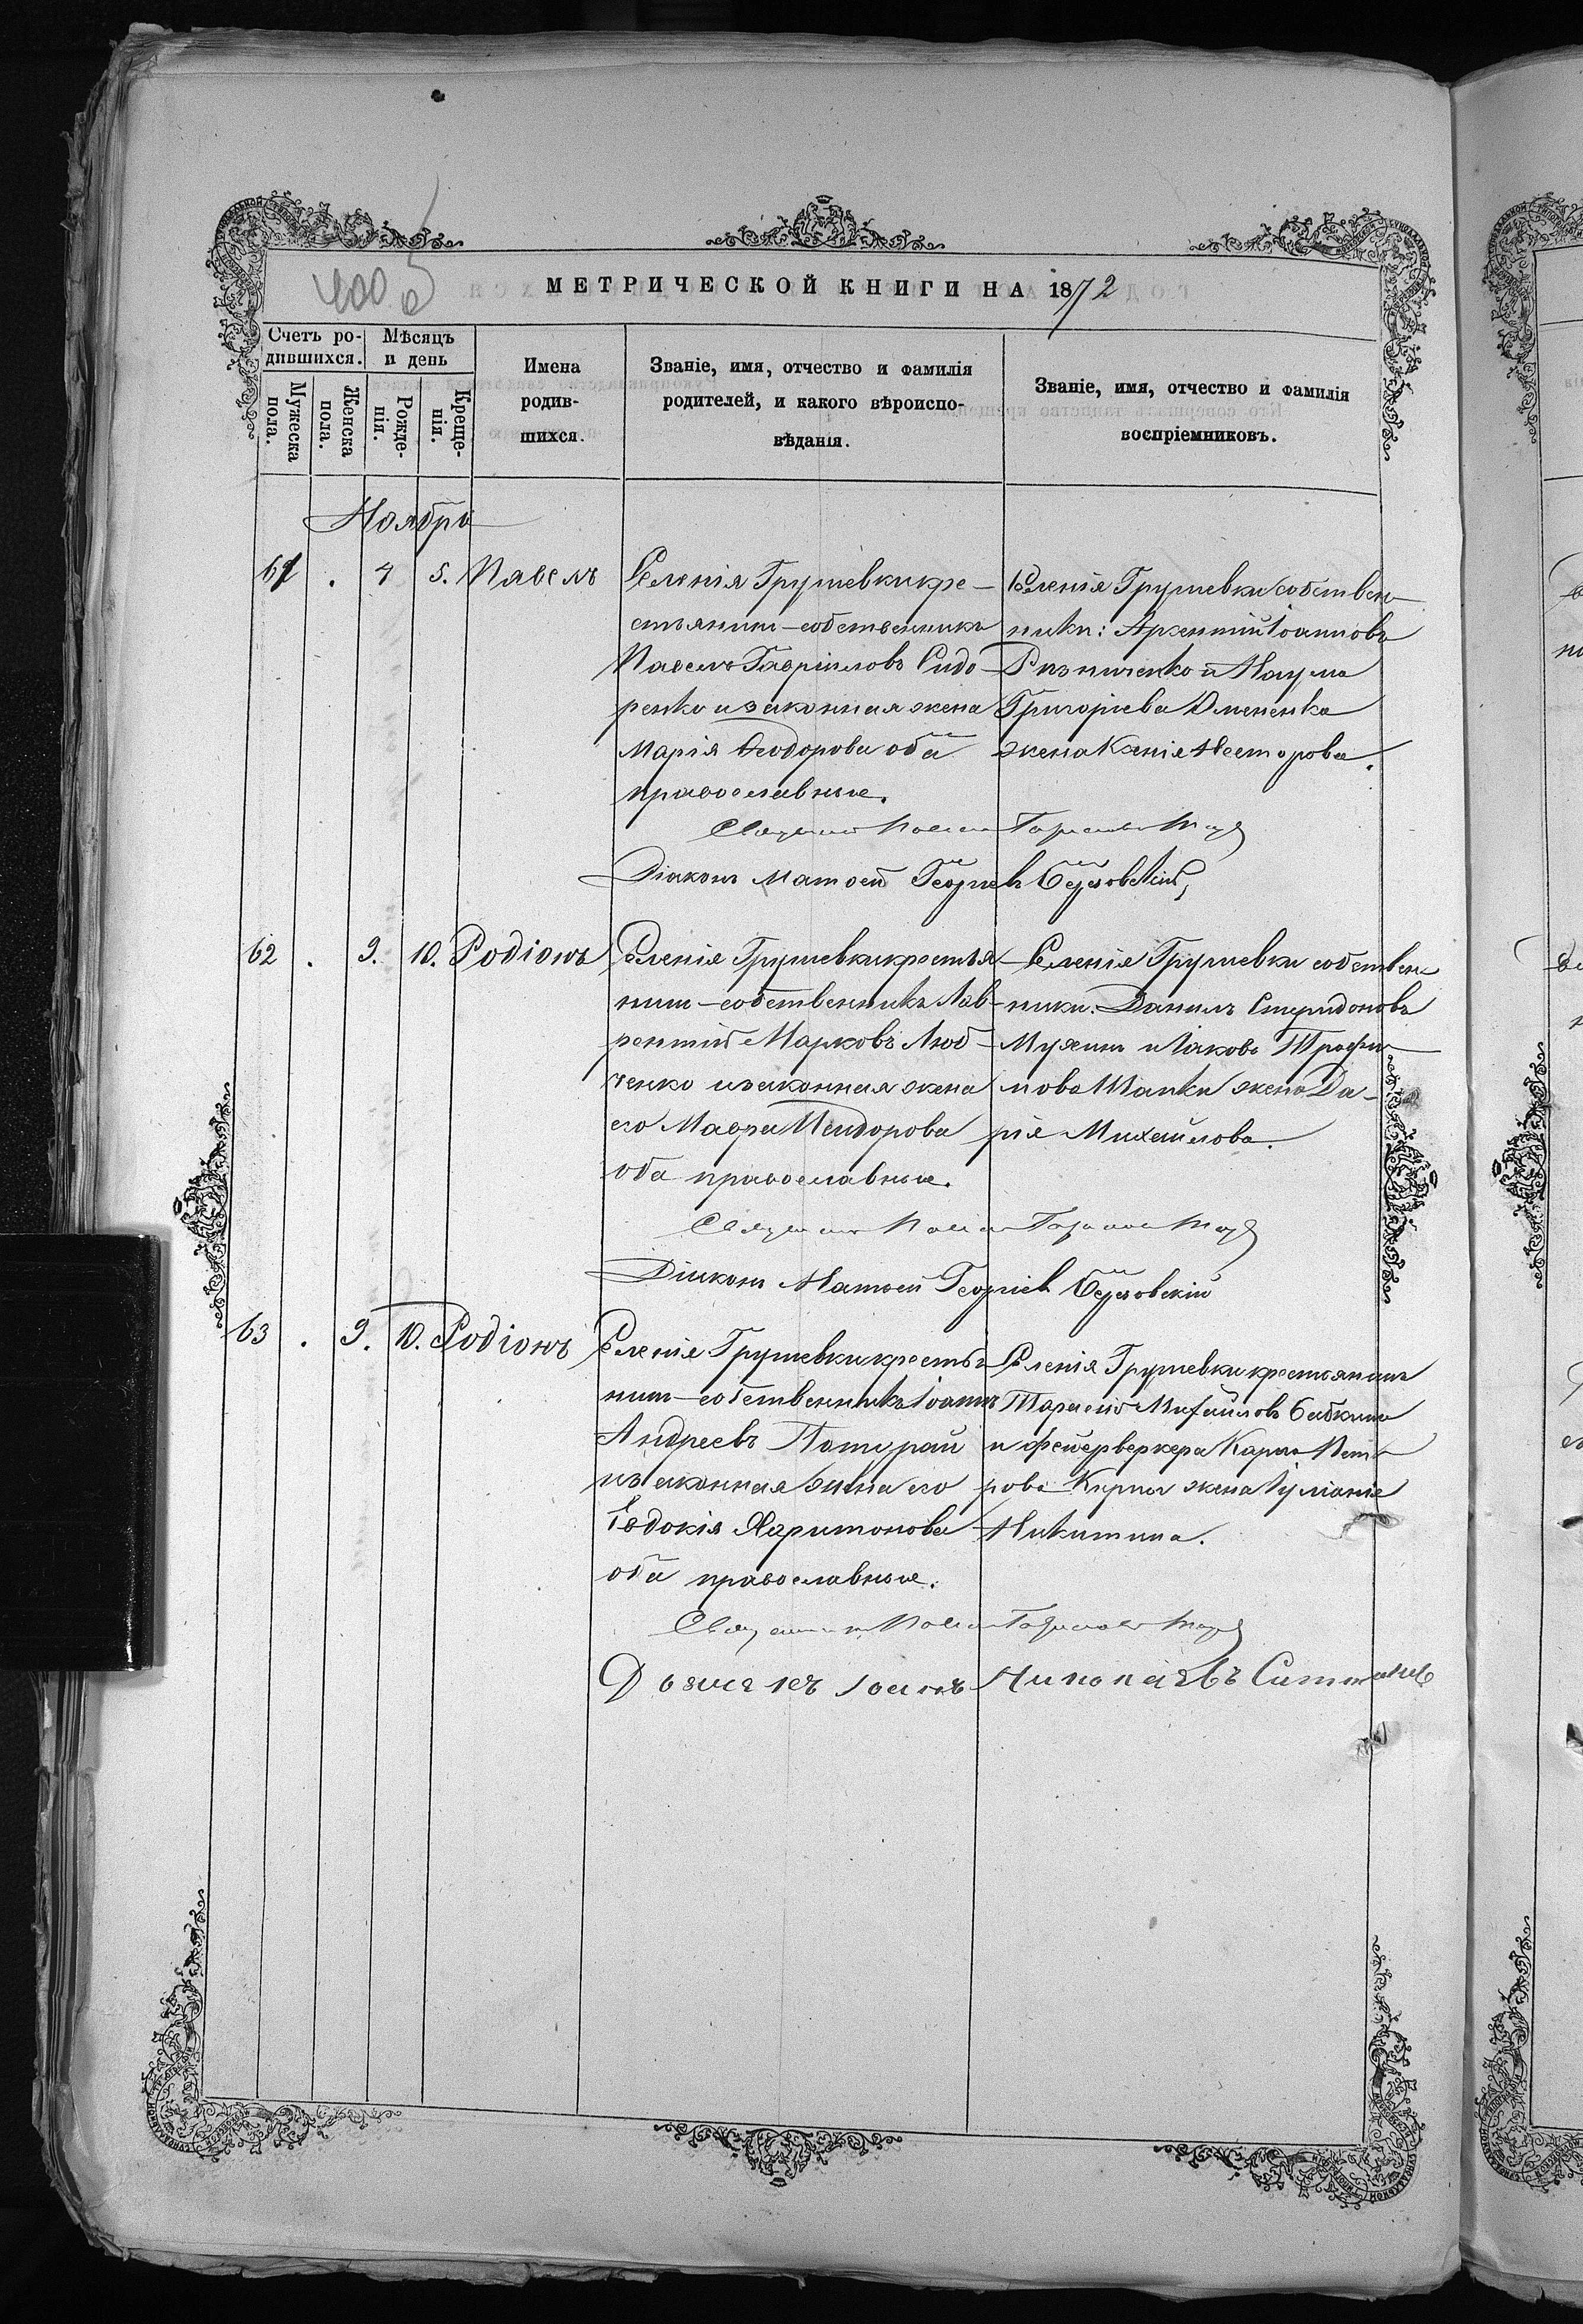 МЕТРИЧЕСКОЙ КНИГИ НА 1872
Счетъ ро-
дившихся.
Мѣсяцъ
и день
Мужеска
пола.
Женска
пола.
Рожде-
нія.
Креще-
нія.
Имена
родив-
шихся.
Званіе, имя, отчество и фамилія
родителей, и какого вѣроиспо-
вѣданія.
Званіе, имя, отчество и фамилія
воспріемниковъ.
Ноябрь
61 . 4 5. Павелъ
Селенія Грушевки кре-
стьянинъ-собственникъ
Павелъ Гавріиловъ Сидо-
ренко и законная жена
Марія Ѳеодорова оба
православные.
Селенія Грушевки собствен-
ники: Арсентій Іоанновъ
и Наума
Григоріева
жена Ксенія Несторова.
Священникъ
Діаконъ Матѳей Георгіевъ
62 . 9. 10. Родіонъ
Селенія Грушевки крестья-
нинъ-собственникъ Лав-
рентій Марковъ Люб-
ченко и законная жена
его Мавра Исидорова
оба православные.
Селенія Грушевки собствен-
ники: Данилъ Спиридоновъ
Мухинъ и Іакова Трофи-
мова жена Да-
рія Михайлова.
Священникъ
Діаконъ Матѳей Георгіевъ
63 . 9. 10. Родіонъ
Селенія Грушевки крестья-
нинъ-собственникъ Іоаннъ
Андреевъ Потурай
и законная жена его
Евдокія Харитонова
оба православные.
Селенія Грушевки крестьянинъ
Тарасій Михайловъ
и фейерверкера Карпа Пет-
рова жена Іуліанія
Никитина.
Священникъ
Іоаннъ